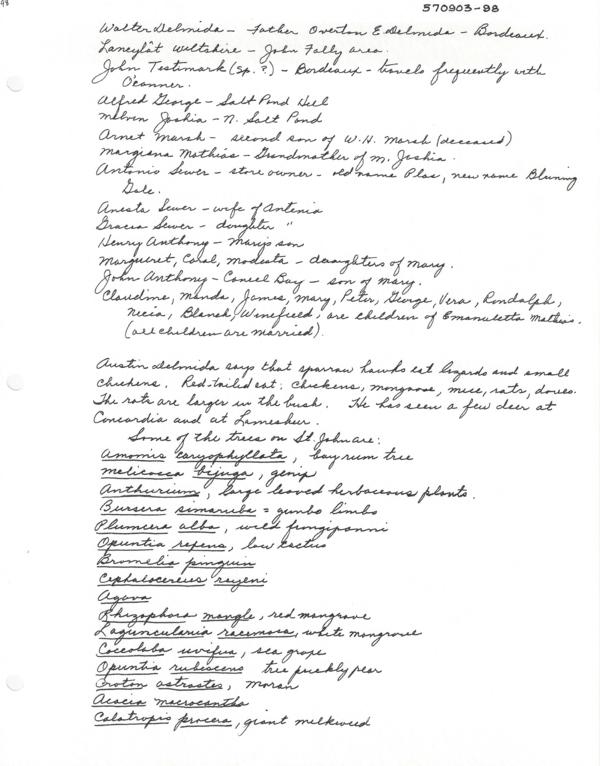 98
570903-98
Walter Delmida - Father Overton E Delmida - Bordeaux.
Lancylôt Wiltshire - John Folly area.
John Testimark (sp.?) - Bordeaux - travels frequently with
O'conner.
Alfred George - Salt Pond Hill
Melvin Joshia - N. Salt Pond
Arnet Marsh - second son of W.H. Marsh (deceased)
Margiana Mathias - Grandmother of M. Joshia.
Antonio Sewer - store owner - old name Plas, new name Bluning
Gale.
Anesta Sewer - wife of Antonio
Gracia Sewer - daughter "
Henry Anthony - Mary's son
Margueret, Coral, Modesta - daughters of Mary.
John Anthony - Caneel Bay - son of Mary.
Claudine, Manda, James, Mary, Peter, George, Vera, Rondalph,
Necia, Blansh, Winefield, are children of Emanuletta Mathias.
(all children are married).
Austin Delmida says that sparrow hawks eat lizards and small
chickens. Red-tailed eat: chickens, mongoose, mice, rats, doves.
The rats are larger in the bush. He has seen a few deer at
Concordia and at Lameshur.
Some of the trees on St. John are:
Amomis caryophyllata, bay rum tree
Melicocca bijuga, genip
Anthurium, large leaved herbaceous plants.
Bursera simaruba = gumbo limbo
Plumeria alba, wild frangipanni
Opuntia repens, low cactus
Bromelia pinguin
Cephalocereus royeni
Agava
Rhizophora mangle, red mangrove
Laguncularia racemosa, white mangrove
Coccoloba uvifua, sea grape
Opuntia rubiscens tree prickly pear
Croton astroites, moran
Acacia macrocantha
Calatropis procera, giant milkweed